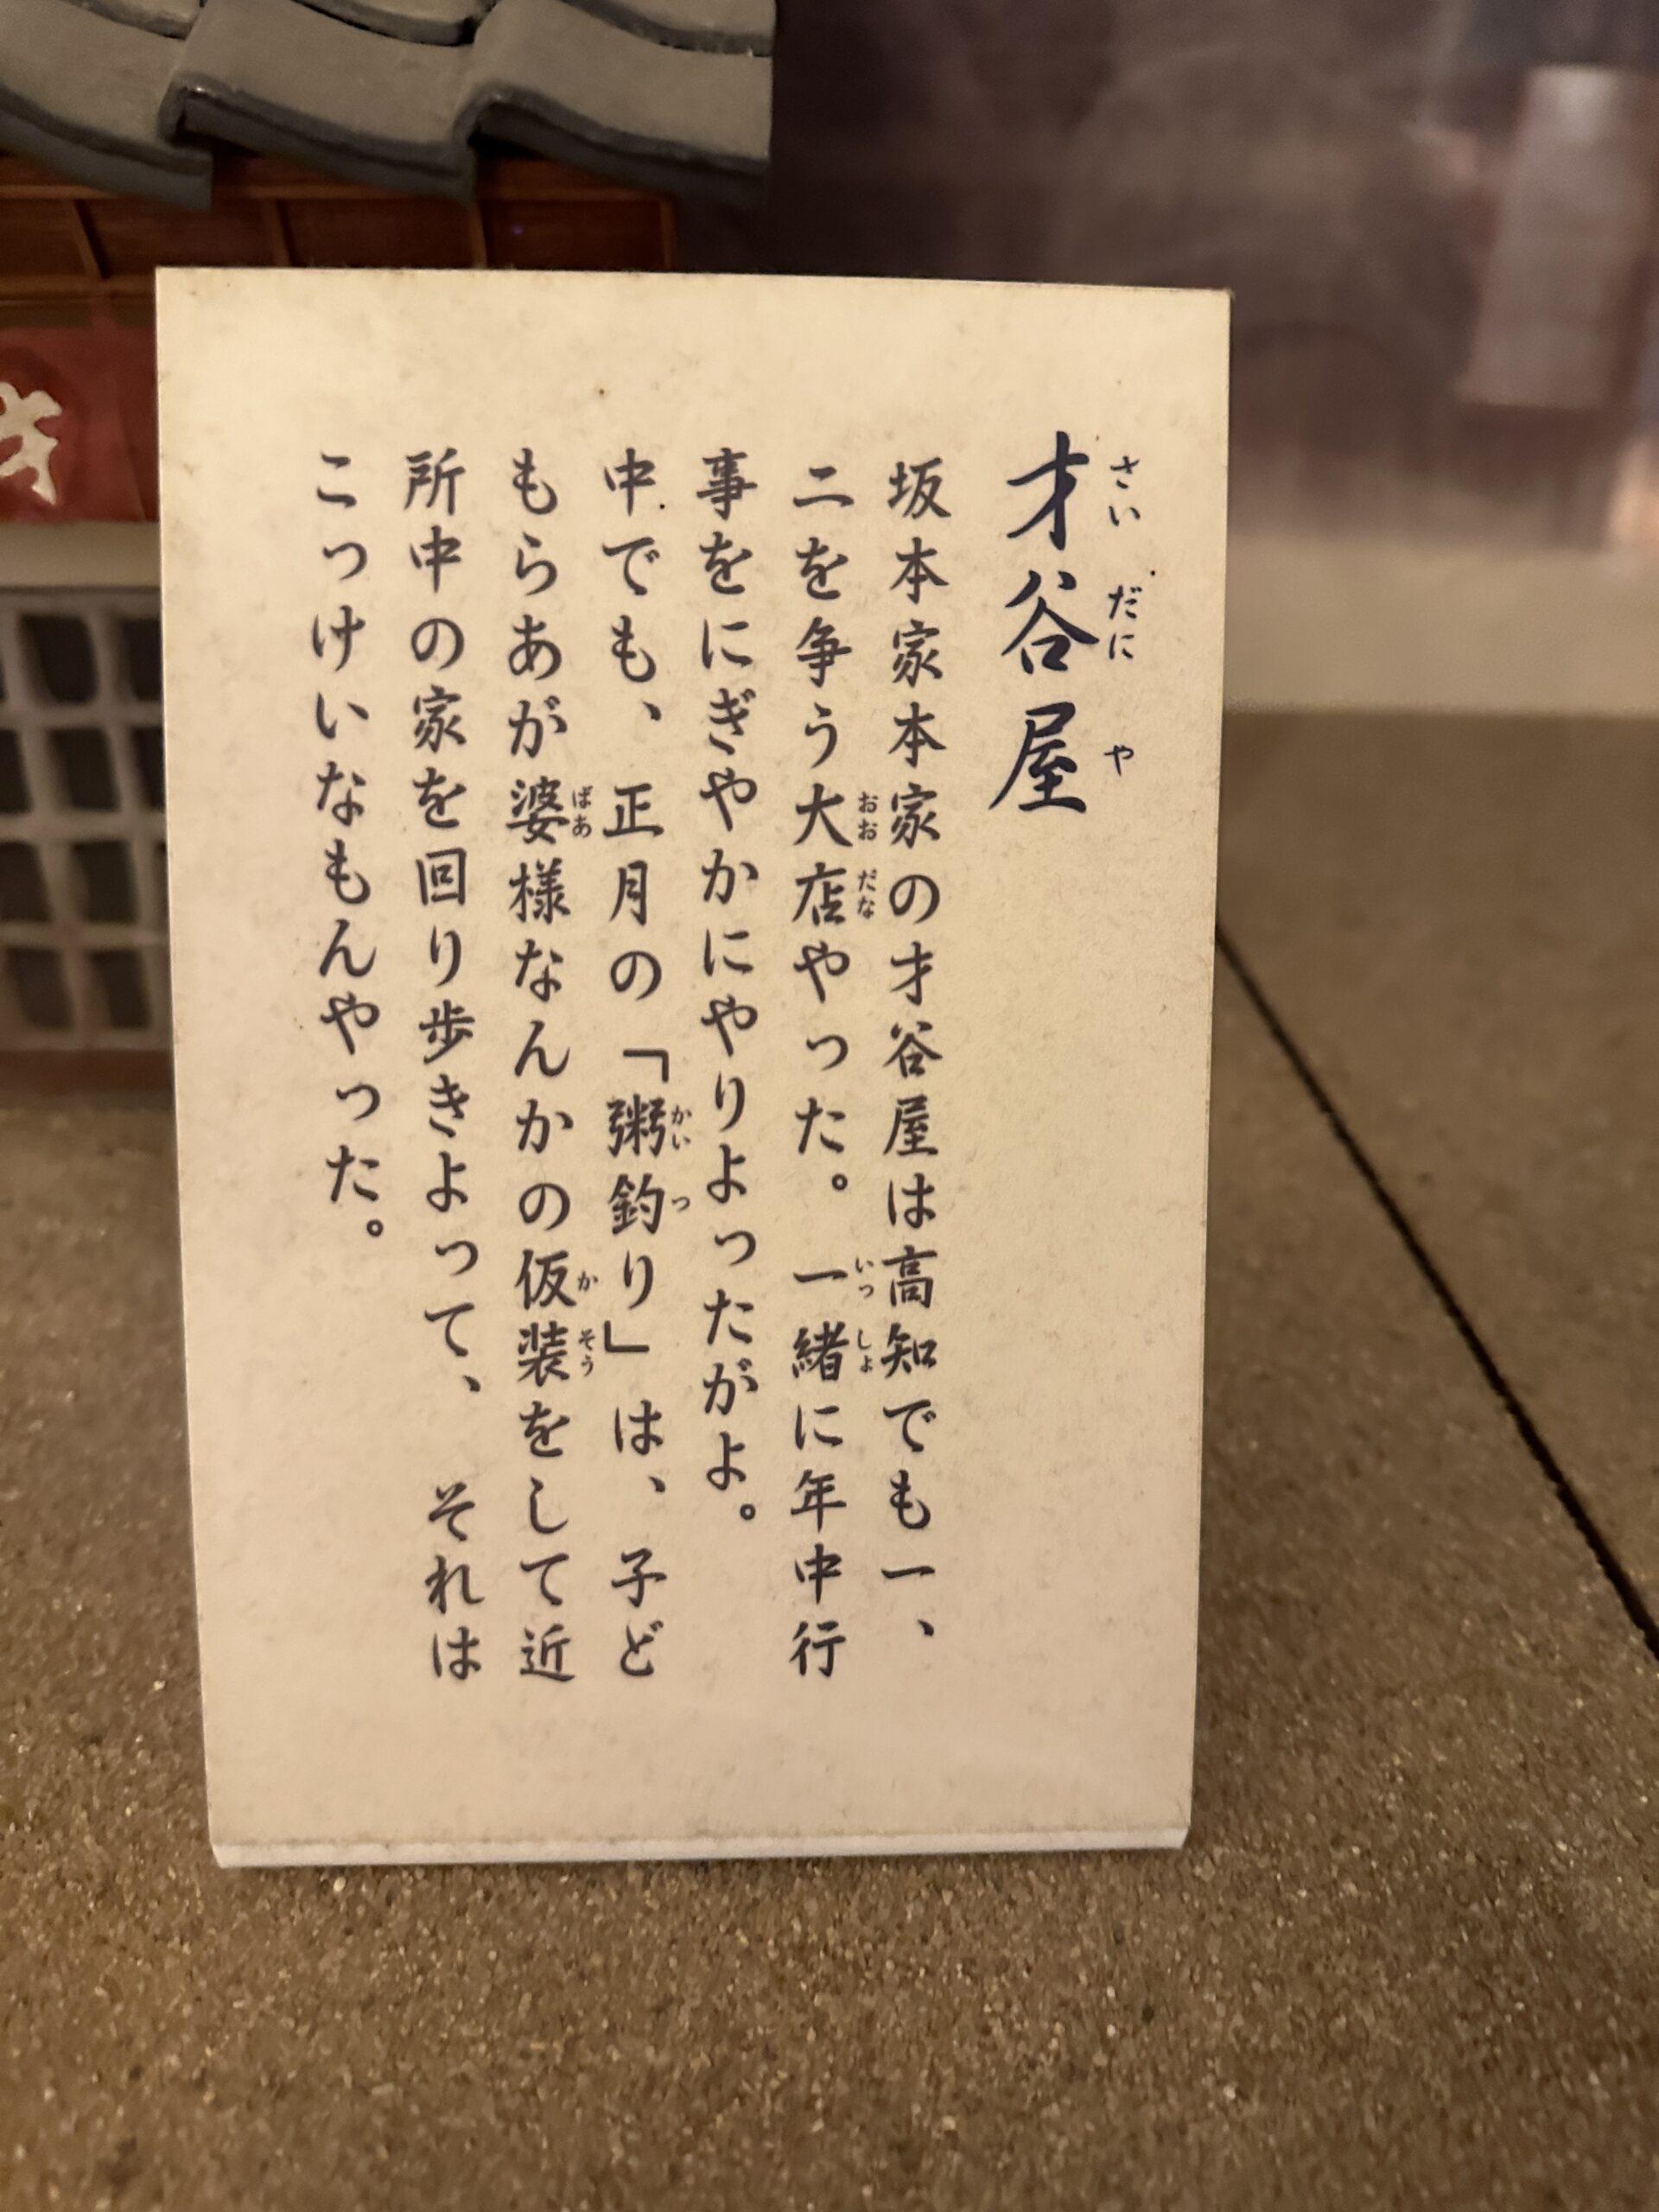 才谷屋
さいだにや
坂本家本家の才谷屋は高知でも一、
二を争う大店やった。一緒に年中行
おおだな
いっしょ
事をにぎやかにやりよったがよ。
中でも、正月の「粥釣り」は、子ど
かいつ
もらあが婆様なんかの仮装をして近
ばあ
かそう
所中の家を回り歩きよって、それは
こっけいなもんやった。
才